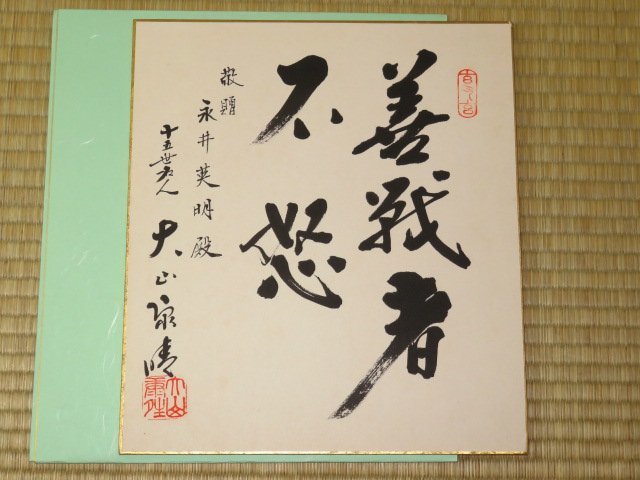 善戦者
不怒
敬贈
永井英明殿
十五世名人
大山康晴
大山康晴